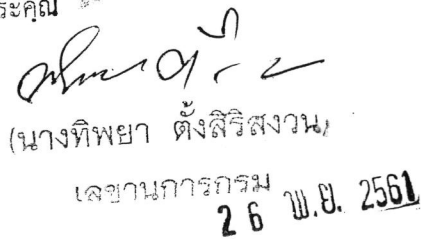 (นางทิพยา ตั้งสิริสงวน)
เลขานุการกรม
26 พ.ย. 2561